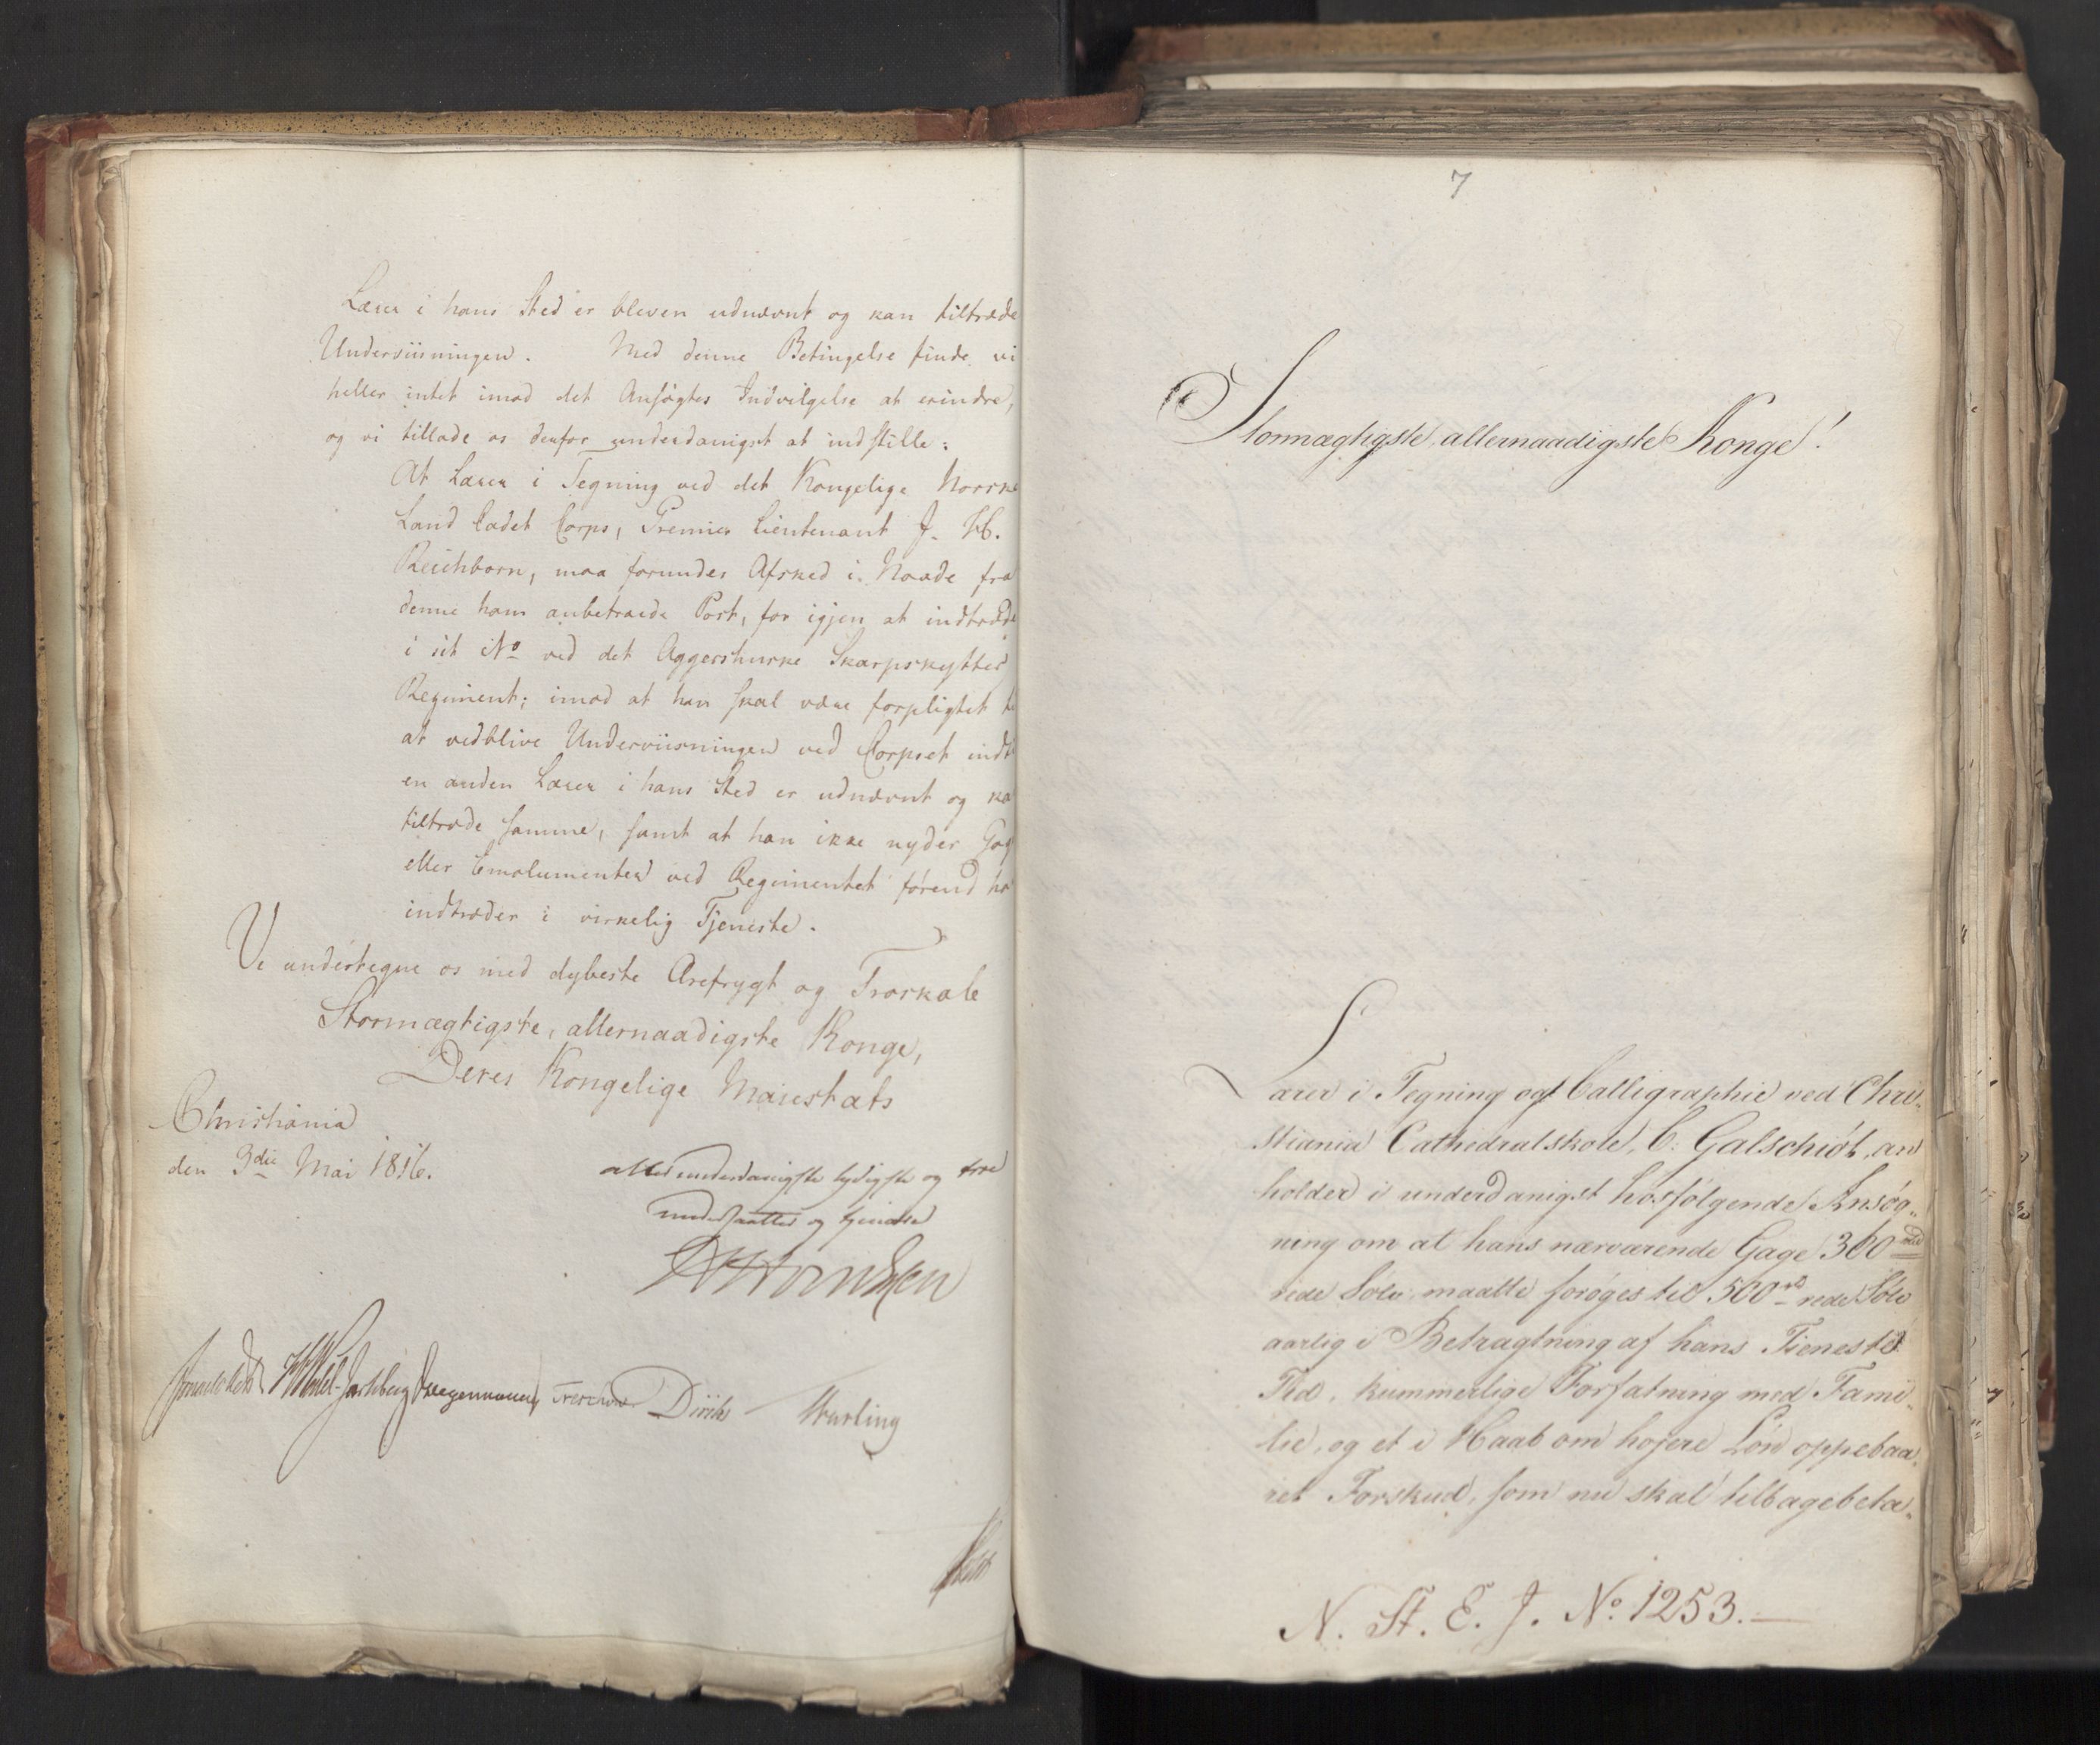 Lærer i hans Sted er bleven udnævnt og kan tiltræde
Underviisningen. Med denne Betingelse finde vi
heller intet imod det Ansøgtes Indvilgelse at erindre,
og vi tillade os derfor underdanigst at indstille:
At Lærer i Tegning ved det Kongelige Norske
Land Cadet Corps, Premier Lieutenant J. H.
Reichborn, maa forundes Afsked i Naade fra
denne ham anbetroede Post, for igjen at indtræde
i sit No ved det Aggershuuske Skarpskytter
Regiment; imod at han skal være forpligtet
at vedblive Underviisningen ved Corpset indt
en anden Lærer i hans Sted er udnævnt og ka
tiltræde samme, samt at han ikke nyder Gag
eller Emolumenter ved Regimentet førend ha
indtræder i virkelig Tjeneste.
Vi undertegne os med dybeste Ærefrygt og Troskab
Stormægtigste, allernaadigste Konge,
Deres Kongelige Maiestæts
Christiania
den 3die Mai 1816.
allerunderdanigste lydigste og troe
undersaatter og tjenere
Wedel-Jarlsberg Treschow Diriks
7
Stormægtigste, allernaadigste Konge!
Lærer i Tegning og Calligraphie ved Chri-
stiania Cathedralskole, C. Galschiøt, an
holder i underdanigst hosfølgende Ansøg-
ning om at hans nærværende Gage 300
rede Sølv, maatte forøges til 500 rede Sølv
aarlig i Betragtning af hans Tieneste
Tid, kummerlige Forfatning med Fami-
lie, og et i Haab om højere Løn oppebaa-
ret Forskud, som nu skal tilbagebeta-
N. St. E. J. No. 1253.